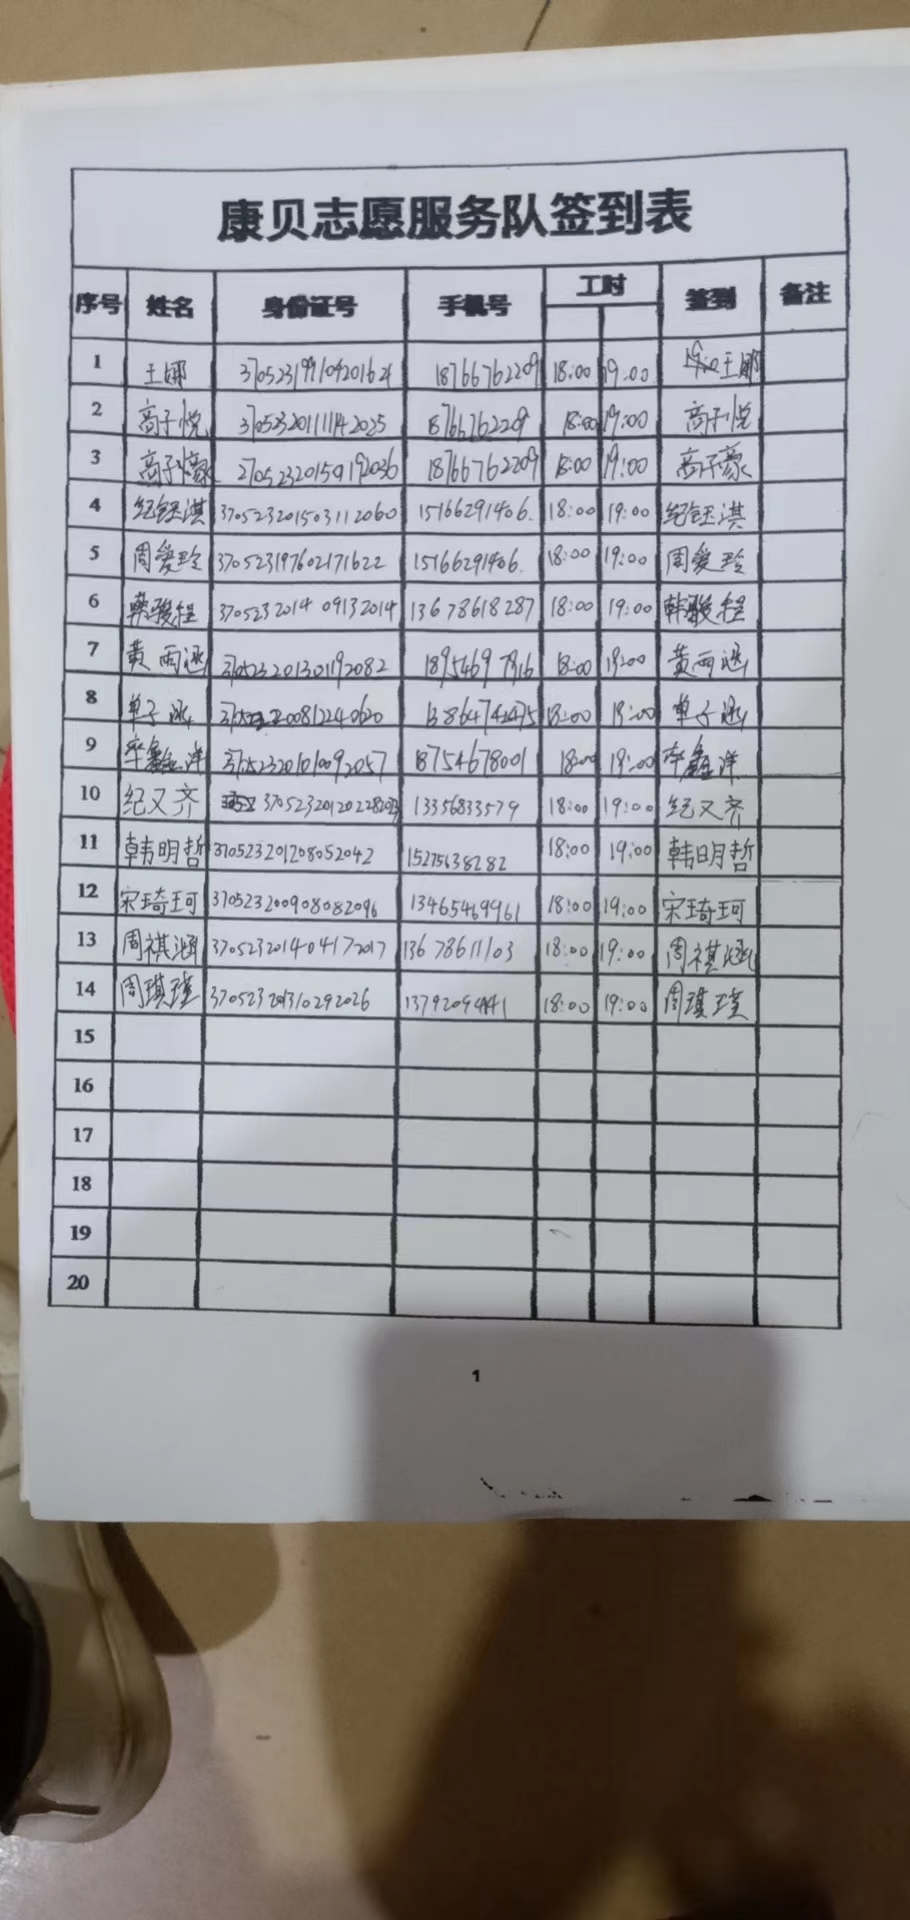 康贝志愿服务队签到表
序号 姓名 身份证号 手机号 工时 签到 备注
1 王娜 18766762209 18:00 19:00 王娜
2 高子悦 370523201111142025 18766762209 18:00 19:00 高子悦
3 18766762209 18:00 19:00 高子豪
4 纪钰淇 370523201503112060 15166291406. 18:00 19:00 纪钰淇
5 周爱玲 370523197602171622 15166291406. 18:00 19:00 周爱玲
6 韩骏程 370523201409132014 13678618287 18:00 19:00 韩骏程
7 黄雨涵 370523201301192082 18:00 19:00 黄雨涵
8 单子涵 18:00 19:00 单子涵
9 370523201010092057 18754678001 18:00 19:00
10 纪又齐 13356833579 18:00 19:00 纪又齐
11 韩明哲 370523201208052042 15275638282 18:00 19:00 韩明哲
12 宋琦珂 370523200908082096 13465469961 18:00 19:00 宋琦珂
13 周祺涵 370523201404172017 13678611103 18:00 19:00 周祺涵
14 周琪瑾 370523201310292026 18:00 19:00 周琪瑾
15
16
17
18
19
20
1